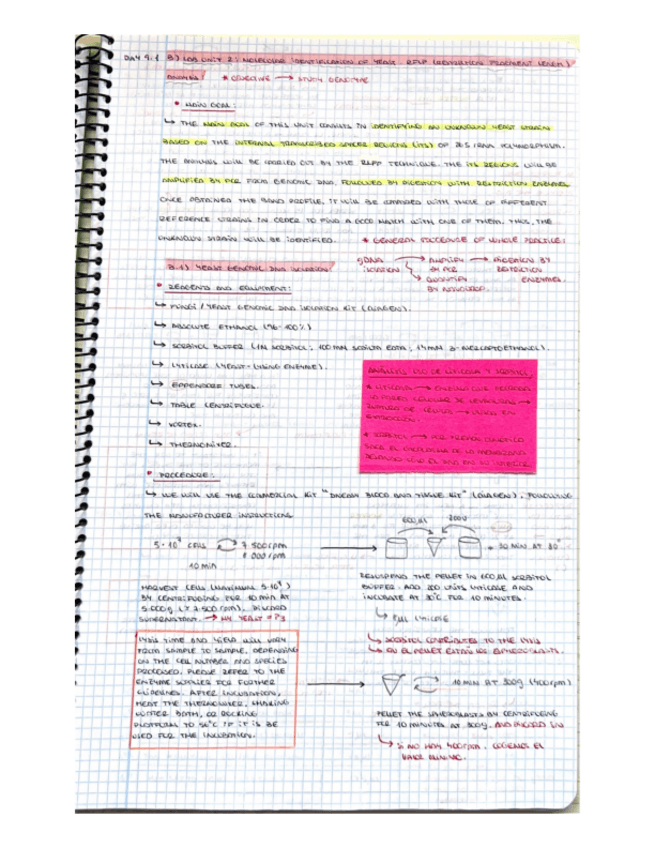 DAY 4:1 B) LAB UNIT 2: MOLECULAR IDENTIFICATION OF YEAST. RFLP (RESTRICTION FRAGMENT LENGTH)
ANALYSIS * OBJECTIVE → STUDY GENOTYPE
• MAIN GOAL:
↳ THE MAIN GOAL OF THIS UNIT CONSISTS IN IDENTIFYING AN UNKNOWN YEAST STRAIN
BASED ON THE INTERNAL TRANSCRIBED SPACER REGIONS (ITS) OF RNA POLYMORPHISM.
THE ANALYSIS WILL BE CARRIED OUT BY THE RFLP TECHNIQUE. THE ITS REGIONS WILL BE
AMPLIFIED BY PCR FROM GENOMIC DNA, FOLLOWED BY DIGESTION WITH RESTRICTION ENZYMES.
ONCE OBTAINED THE BAND PROFILE, IT WILL BE COMPARED WITH THOSE OF DIFFERENT
REFERENCE STRAINS IN ORDER TO FIND A GOOD MATCH WITH ONE OF THEM. THUS, THE
UNKNOWN STRAIN WILL BE IDENTIFIED. * GENERAL PROCEDURE OF WHOLE PRACTICE:
gDNA ISOLATION → AMPLIFY BY PCR → DIGESTION BY RESTRICTION ENZYMES.
↳ QUANTIFY BY NANODROP.
B.1) YEAST GENOMIC DNA ISOLATION
• REAGENTS AND EQUIPMENT:
↳ FUNGI / YEAST GENOMIC DNA ISOLATION KIT (QIAGEN).
↳ ABSOLUTE ETHANOL (96-100%)
↳ SORBITOL BUFFER (1M SORBITOL; 100 MM SODIUM EDTA; 14 MM β-MERCAPTOETHANOL).
↳ LYTICASE (YEAST-LYSING ENZYME).
↳ EPPENDORF TUBES.
↳ TABLE CENTRIFUGE.
↳ VORTEX.
↳ THERMOMIXER.
ANÁLISIS USO DE LITICASA Y SORBITOL:
* LITICASA →
LA PARED CELULAR DE LEVADURAS →
* SORBITOL → POR PRESIÓN OSMÓTICA
• PROCEDURE:
↳ WE WILL USE THE COMMERCIAL KIT "DNEASY BLOOD AND TISSUE KIT" (QIAGEN), FOLLOWING
THE MANUFACTURER INSTRUCTIONS
5·10⁹ CELLS 7 500 rpm
8 000 rpm
10 min
600 µl 200 U
→ 30 MIN AT 30°
HARVEST CELLS (MAXIMUM 5·10⁹)
BY CENTRIFUGING FOR 10 min AT
5.000g (≈ 7.500 rpm). DISCARD
SUPERNATANT. → MY YEAST = P3
RESUSPEND THE PELLET IN 600 µl SORBITOL
BUFFER. ADD 200 UNITS LYTICASE AND
INCUBATE AT 30°C FOR 10 MINUTES.
↳ 8µl LYTICASE
↳ SORBITOL CONTRIBUTES TO THE LYSIS
↳ EN EL PELLET ESTÁN LOS ESFEROBLASTS.
LYSIS TIME AND YIELD WILL VARY
FROM SAMPLE TO SAMPLE, DEPENDING
ON THE CELL NUMBER AND SPECIES
PROCESSED. PLEASE REFER TO THE
ENZYME SUPPLIER FOR FURTHER
GUIDELINES. AFTER INCUBATION,
HEAT THE THERMOMIXER, SHAKING
WATER BATH, OR ROCKING
PLATFORM TO 56°C IF IT IS BE
USED FOR THE INCUBATION.
→ 10 MIN AT 300g (400 rpm)
PELLET THE SPHEROBLASTS BY CENTRIFUGING
FOR 10 MINUTES AT 300g.
↳ SI NO HAY 400 rpm, COGEMOS EL
VALOR MÍNIMO.